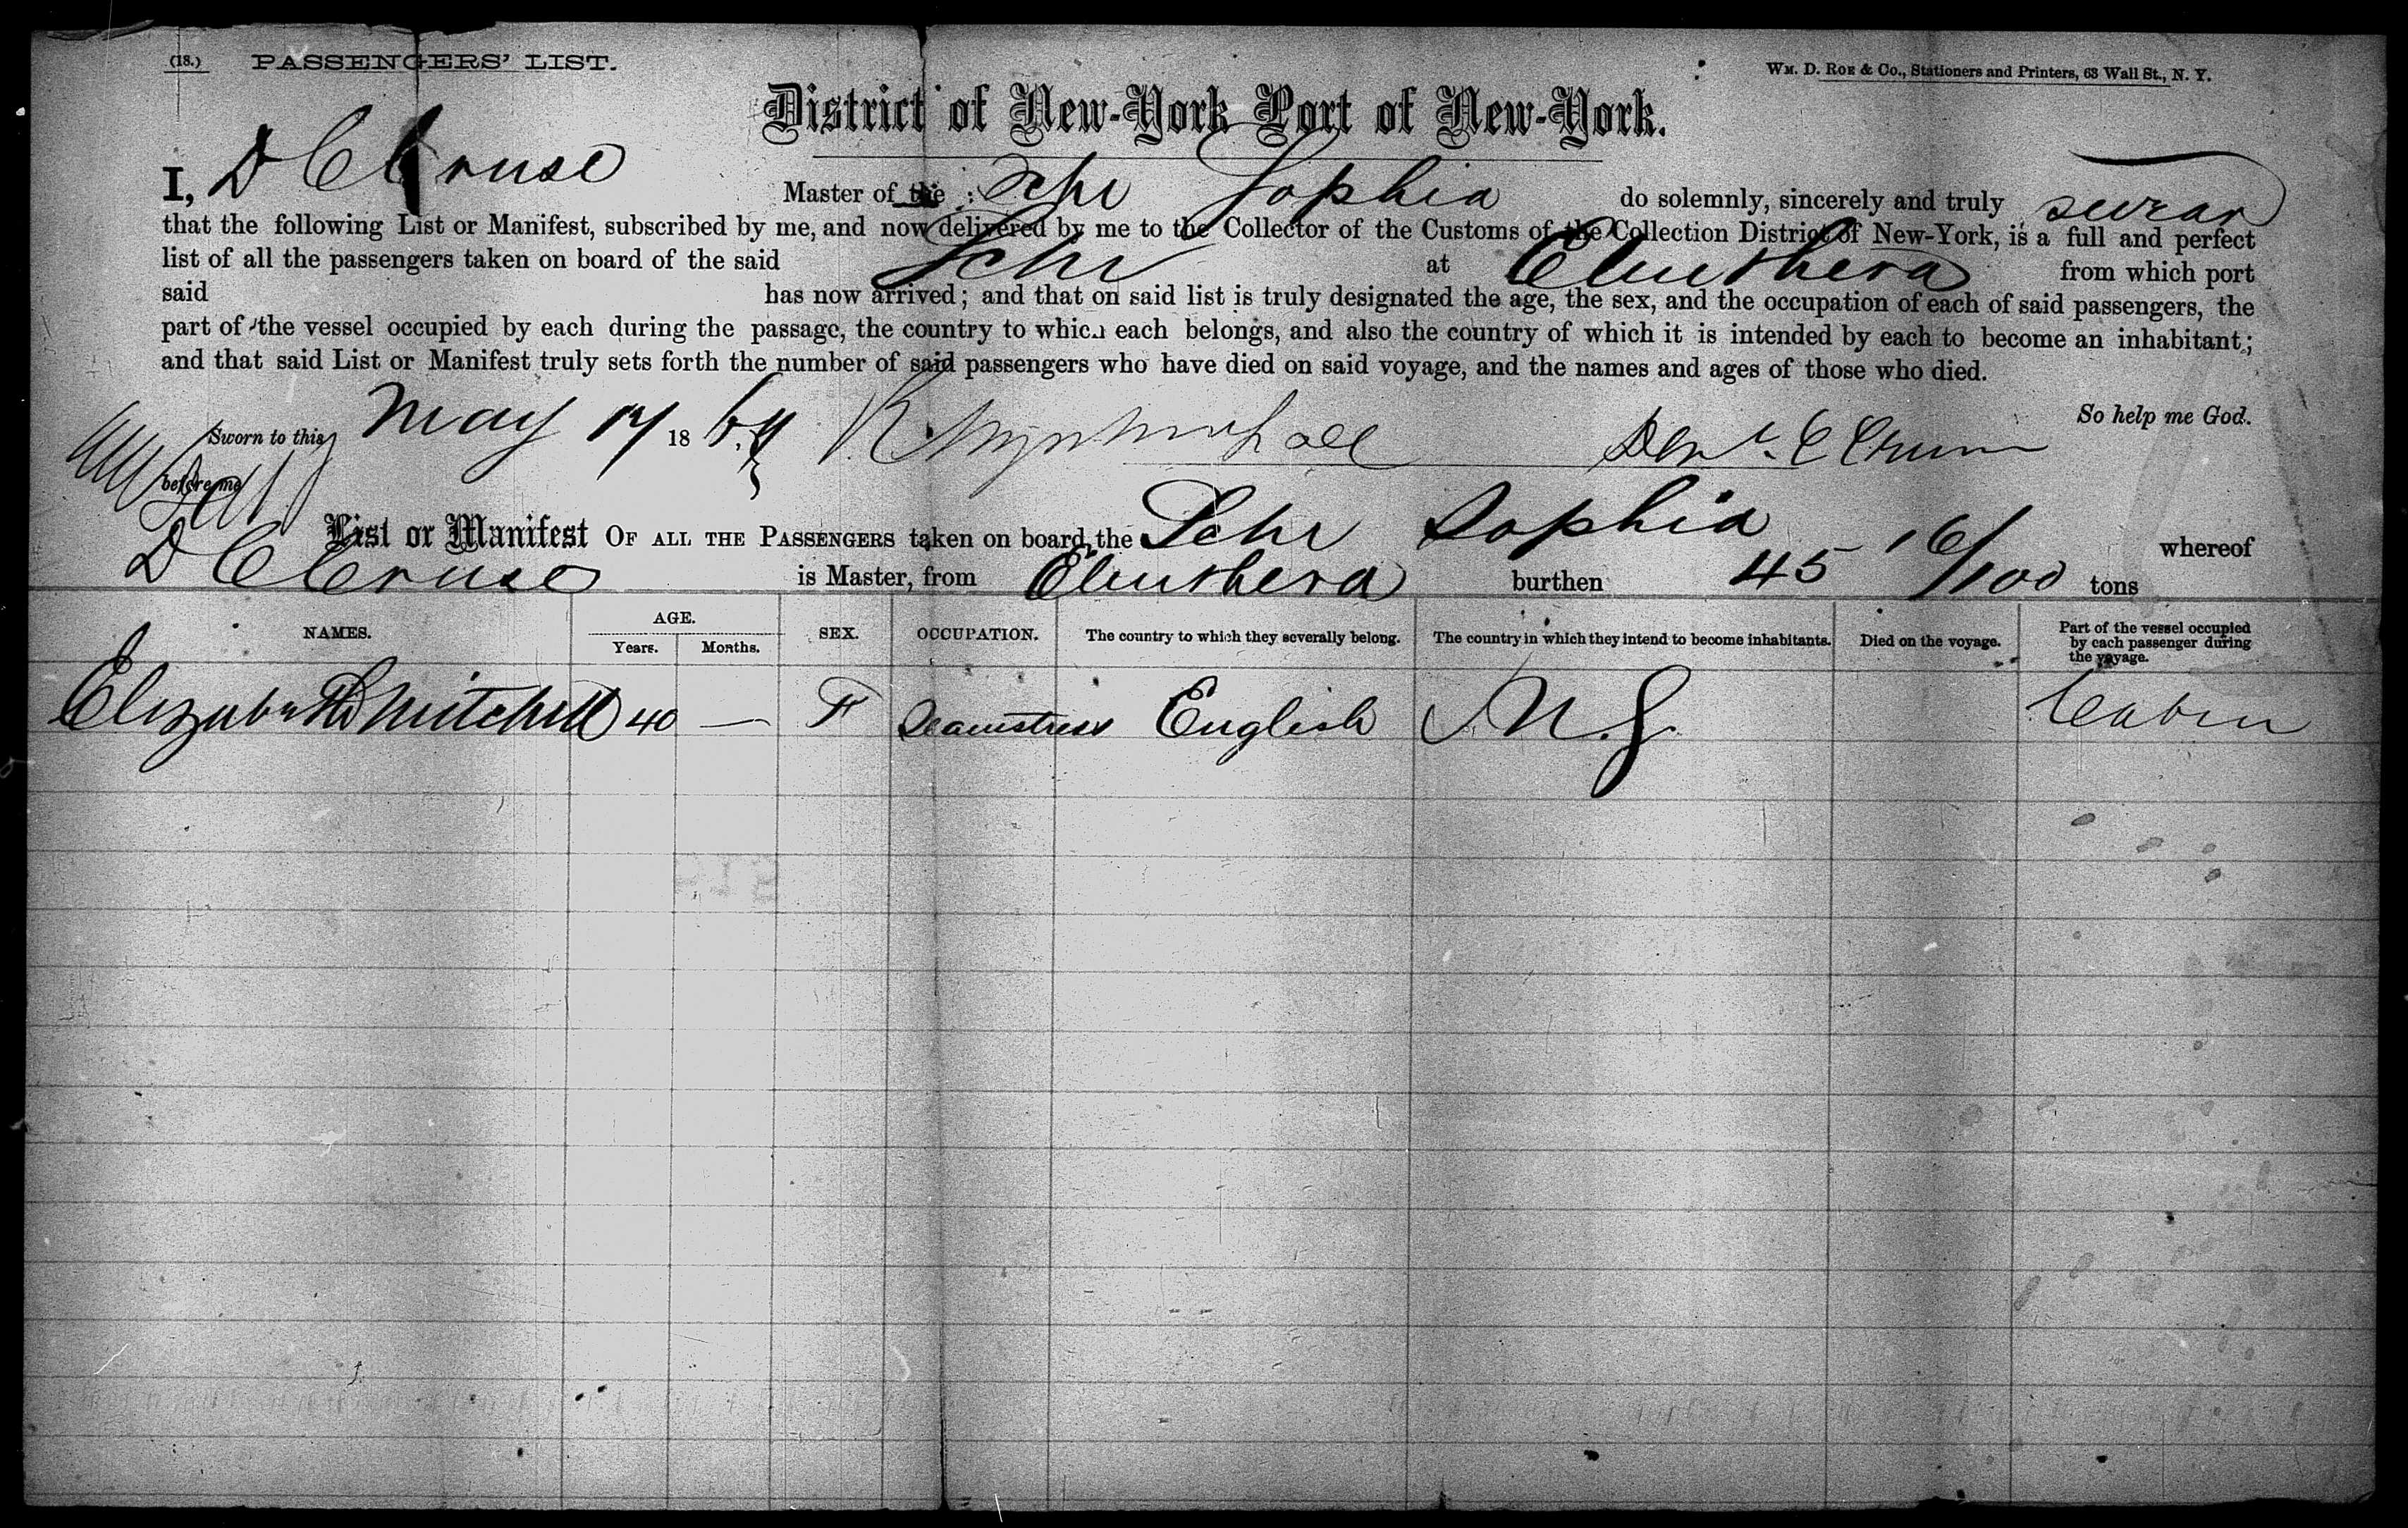 (18.) PASSENGERS' LIST. WM. D. ROE & CO., Stationers and Printers, 63 Wall St., N. Y.
District of New-York Port of New-York.
I, D C Cruse Master of the Schr Sophia do solemnly, sincerely and truly swear
that the following List or Manifest, subscribed by me, and now delivered by me to the Collector of the Customs of the Collection District of New-York, is a full and perfect
list of all the passengers taken on board of the said Schr at Eleuthera from which port
said has now arrived; and that on said list is truly designated the age, the sex, and the occupation of each of said passengers, the
part of the vessel occupied by each during the passage, the country to which each belongs, and also the country of which it is intended by each to become an inhabitant;
and that said List or Manifest truly sets forth the number of said passengers who have died on said voyage, and the names and ages of those who died.
So help me God.
Sworn to this May 17 1869
before me
List or Manifest OF ALL THE PASSENGERS taken on board the Schr Sophia whereof
D C Cruse is Master, from Eleuthera burthen 45 16/100 tons
NAMES. AGE. Years. Months. SEX. OCCUPATION. The country to which they severally belong. The country in which they intend to become inhabitants. Died on the voyage. Part of the vessel occupied by each passenger during the voyage.
Elizabeth Mitchell 40 — F Seamstress English Cabin